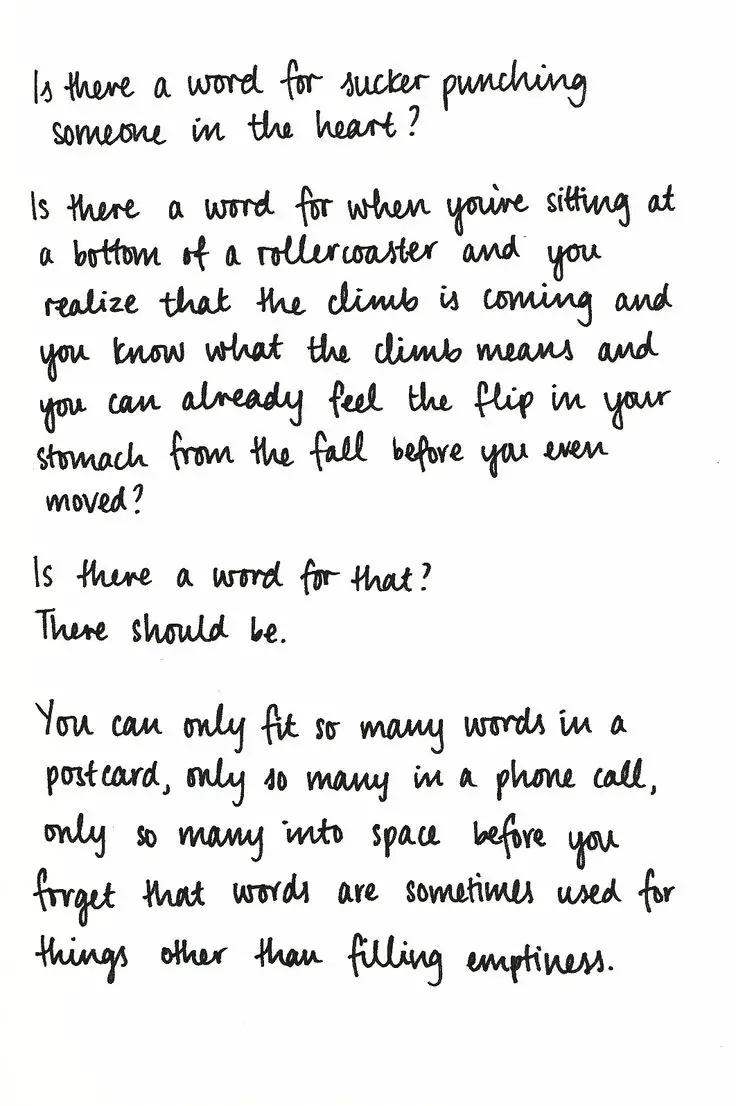 Is there a word for sucker punching
someone in the heart?
Is there a word for when you're sitting at
a bottom of a rollercoaster and you
realize that the climb is coming and
you know what the climb means and
you can already feel the flip in your
stomach from the fall before you even
moved?
Is there a word for that?
There should be.
You can only fit so many words in a
postcard, only so many in a phone call,
only so many into space before you
forget that words are sometimes used for
things other than filling emptiness.